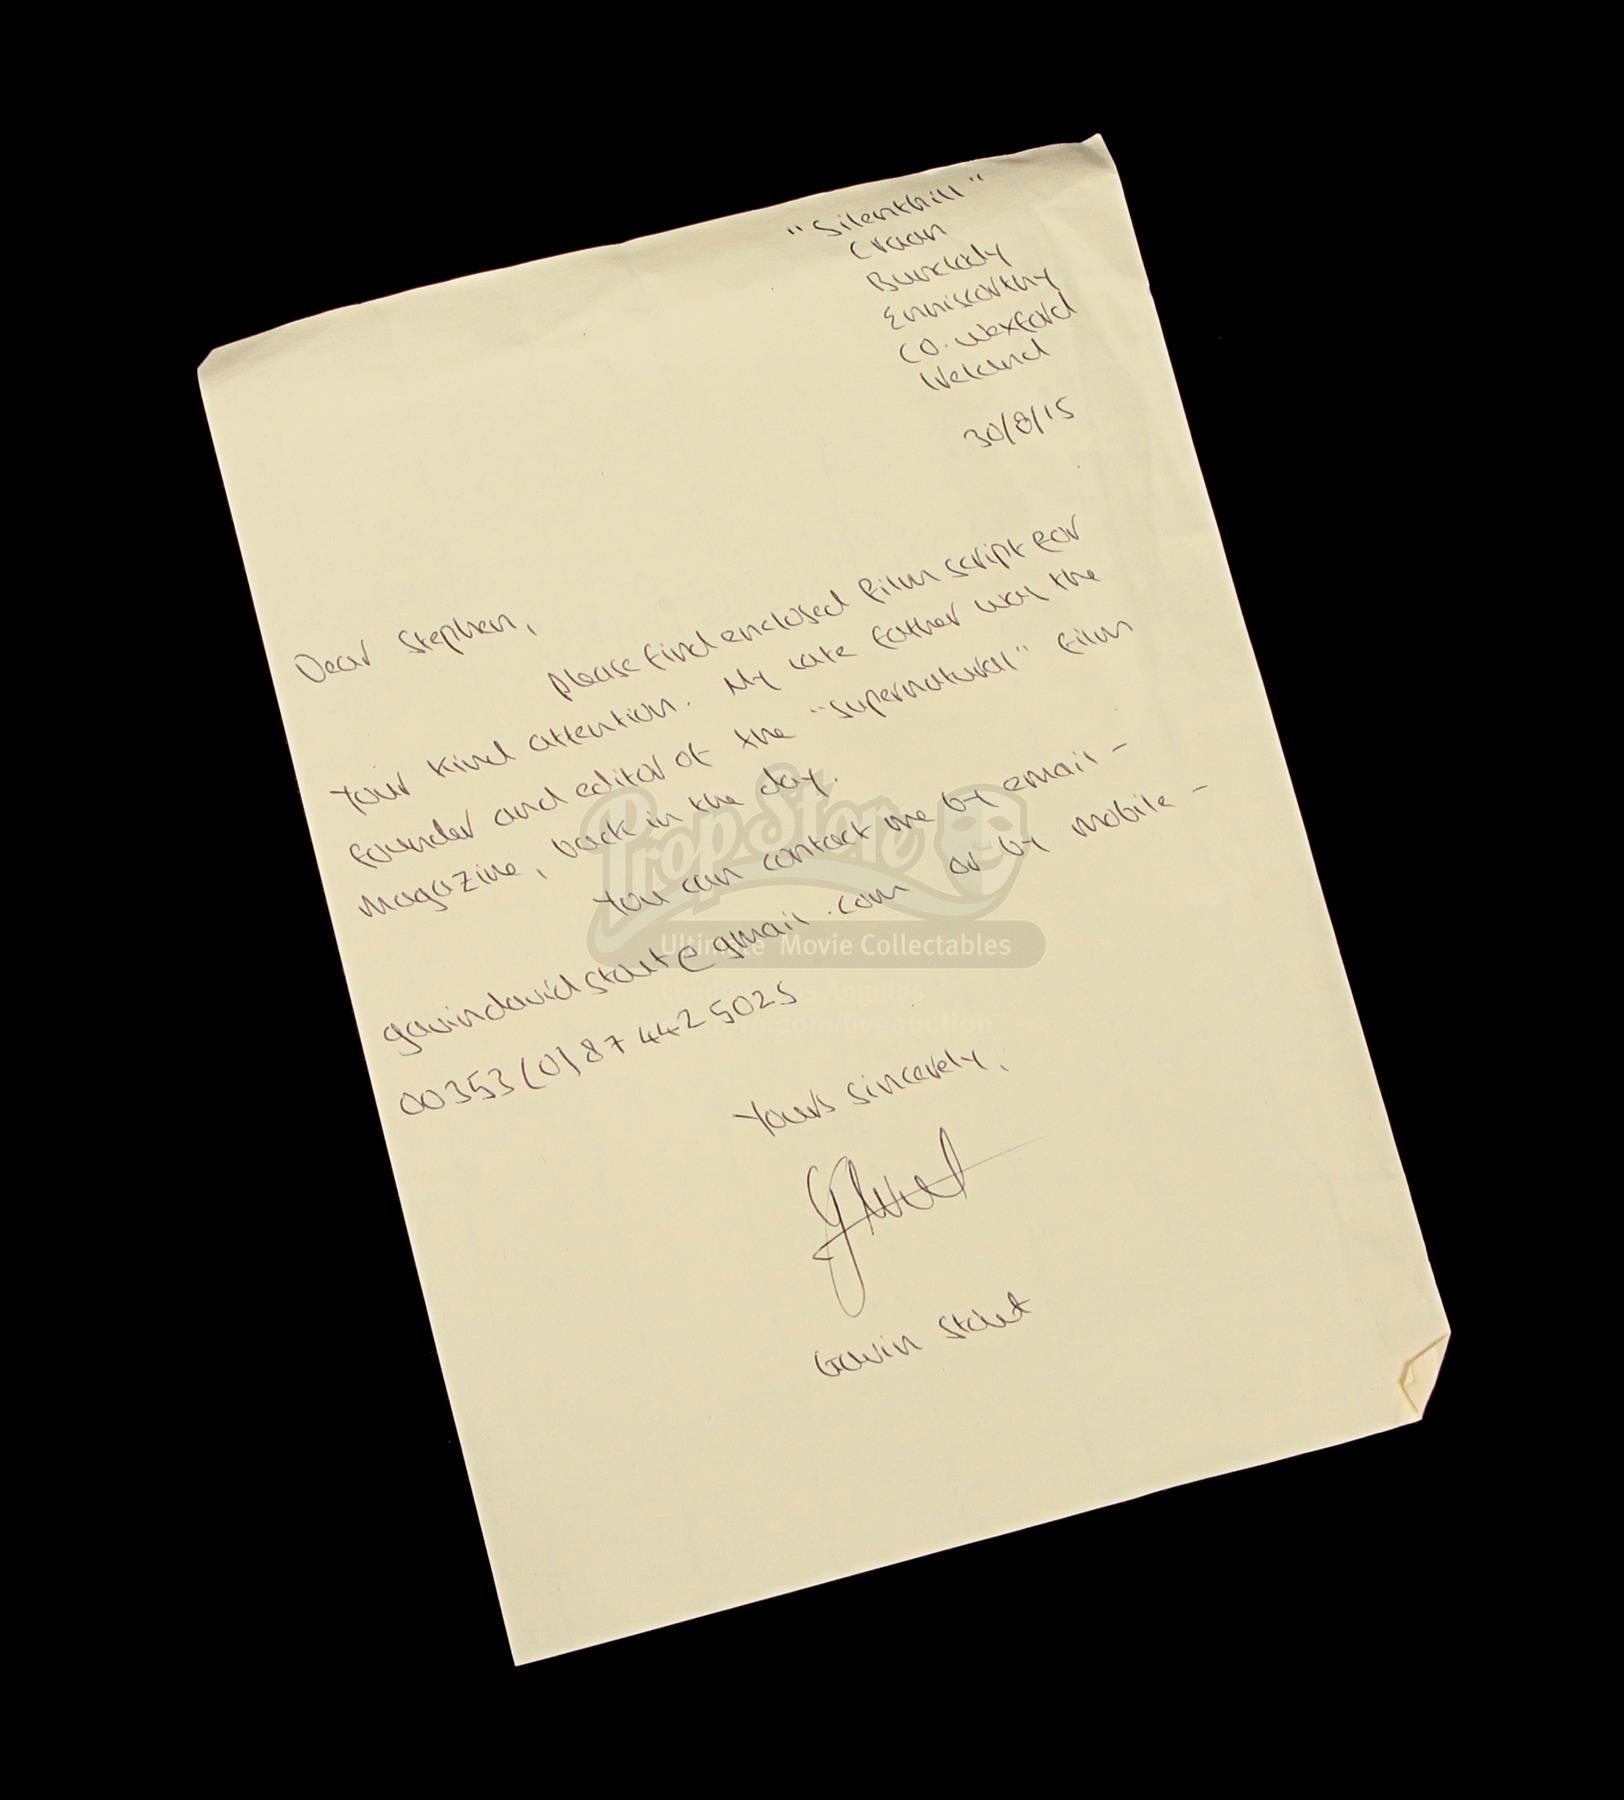 "Silenthill"
Craan
Bunclody
Enniscorthy
Co. Wexford
Ireland
30/8/15
Dear Stephen,
please find enclosed film script for
your kind attention. My late father was the
founder and editor of the "Supernatural" film
magazine, back in the day.
You can contact me by email -
gavindavidstout@gmail.com or by mobile -
00353(0)87 4425025
Yours sincerely,
Gavin Stout
Prop Store
Ultimate Movie Collectables